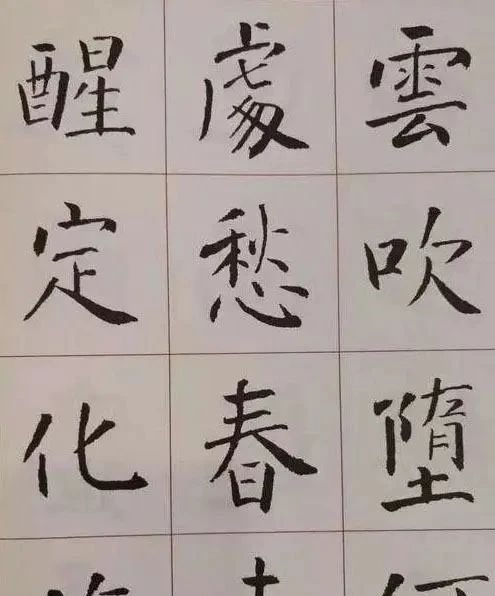 雲吹墮
處愁春
醒定化